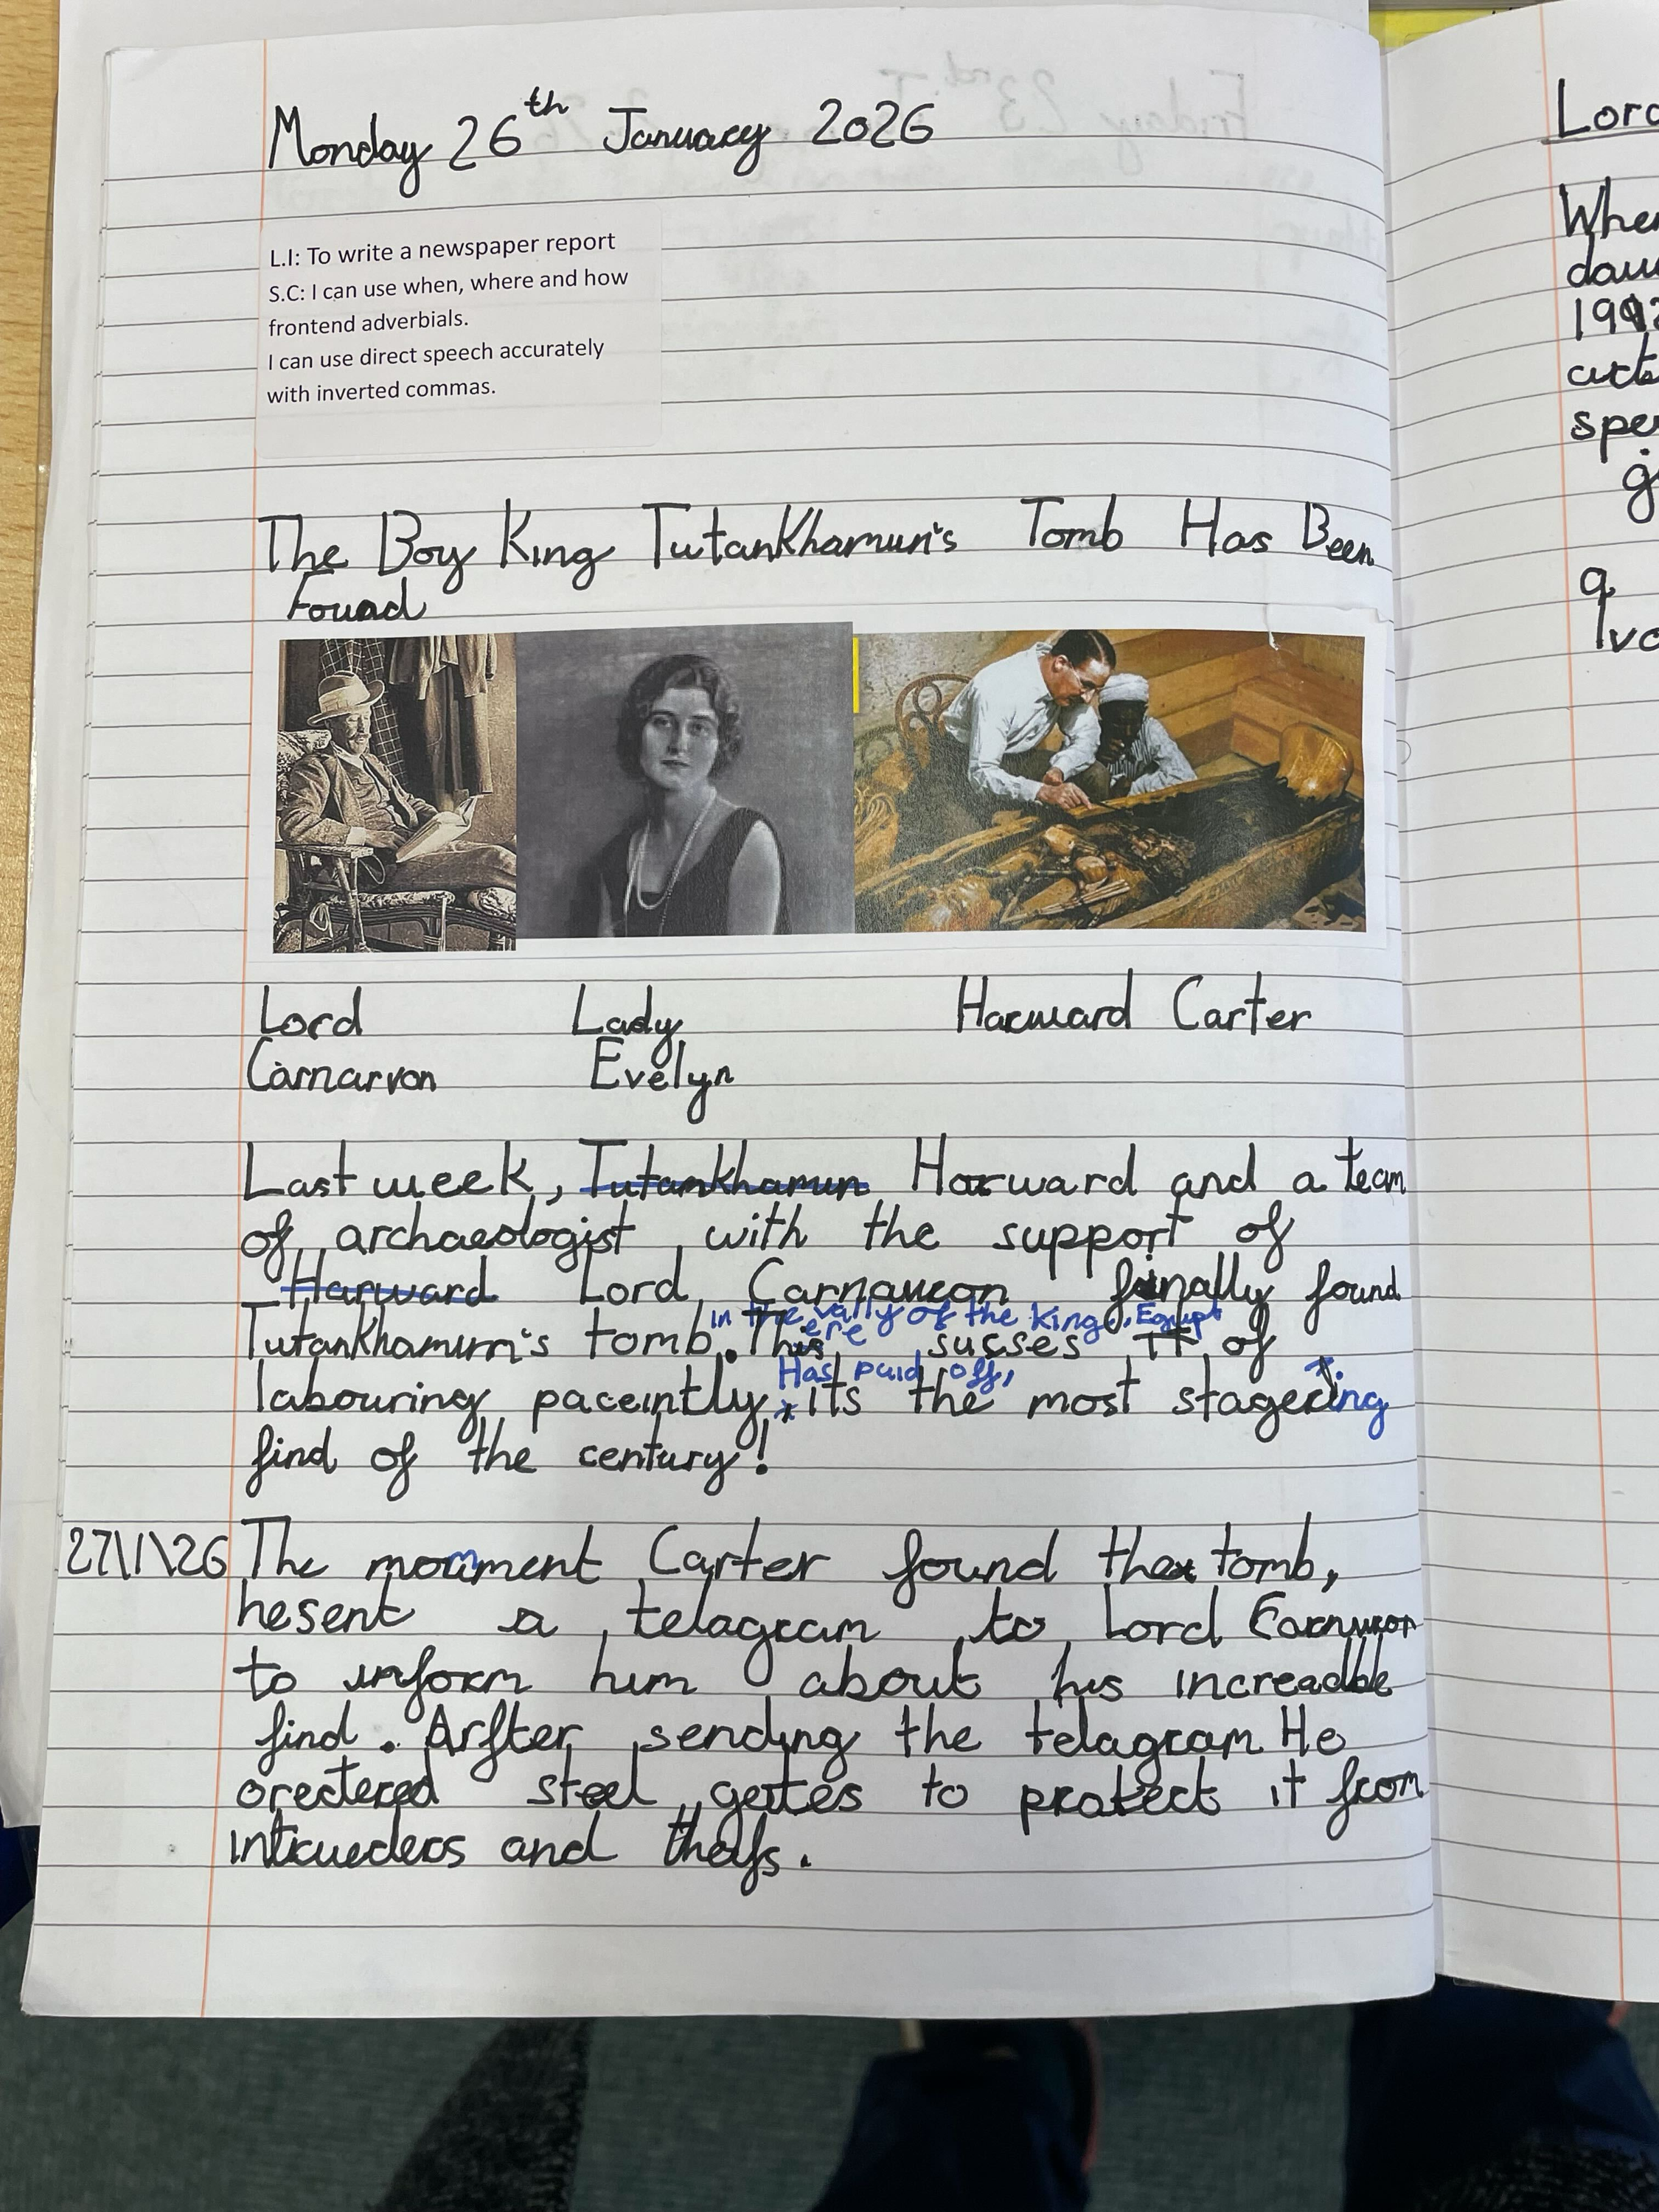 Monday 26th January 2026
L.I: To write a newspaper report
S.C: I can use when, where and how
frontend adverbials.
I can use direct speech accurately
with inverted commas.
The Boy King Tutankhamun's Tomb Has Been
Found
Lord Lady Harward Carter
Carnarvon Evelyn
Last week, Tutankhamun Harward and a team
of archaeologist with the support of
Harward Lord Carnavron finally found
in the vally of the king, Egypt
Tutankhamun's tomb. There susses of
Has paid off,
labouring paceintly, its the most stagering
find of the century!
27\1\26 The momment Carter found the tomb,
hesent a telagram to Lord
to inform him about his increadble
find. Arfter sending the telagram He
orectered steel gertes to protect it from
intrueders and thefs.
Lord
Wher
dau
1992
arte
spe
g
q
Ivo